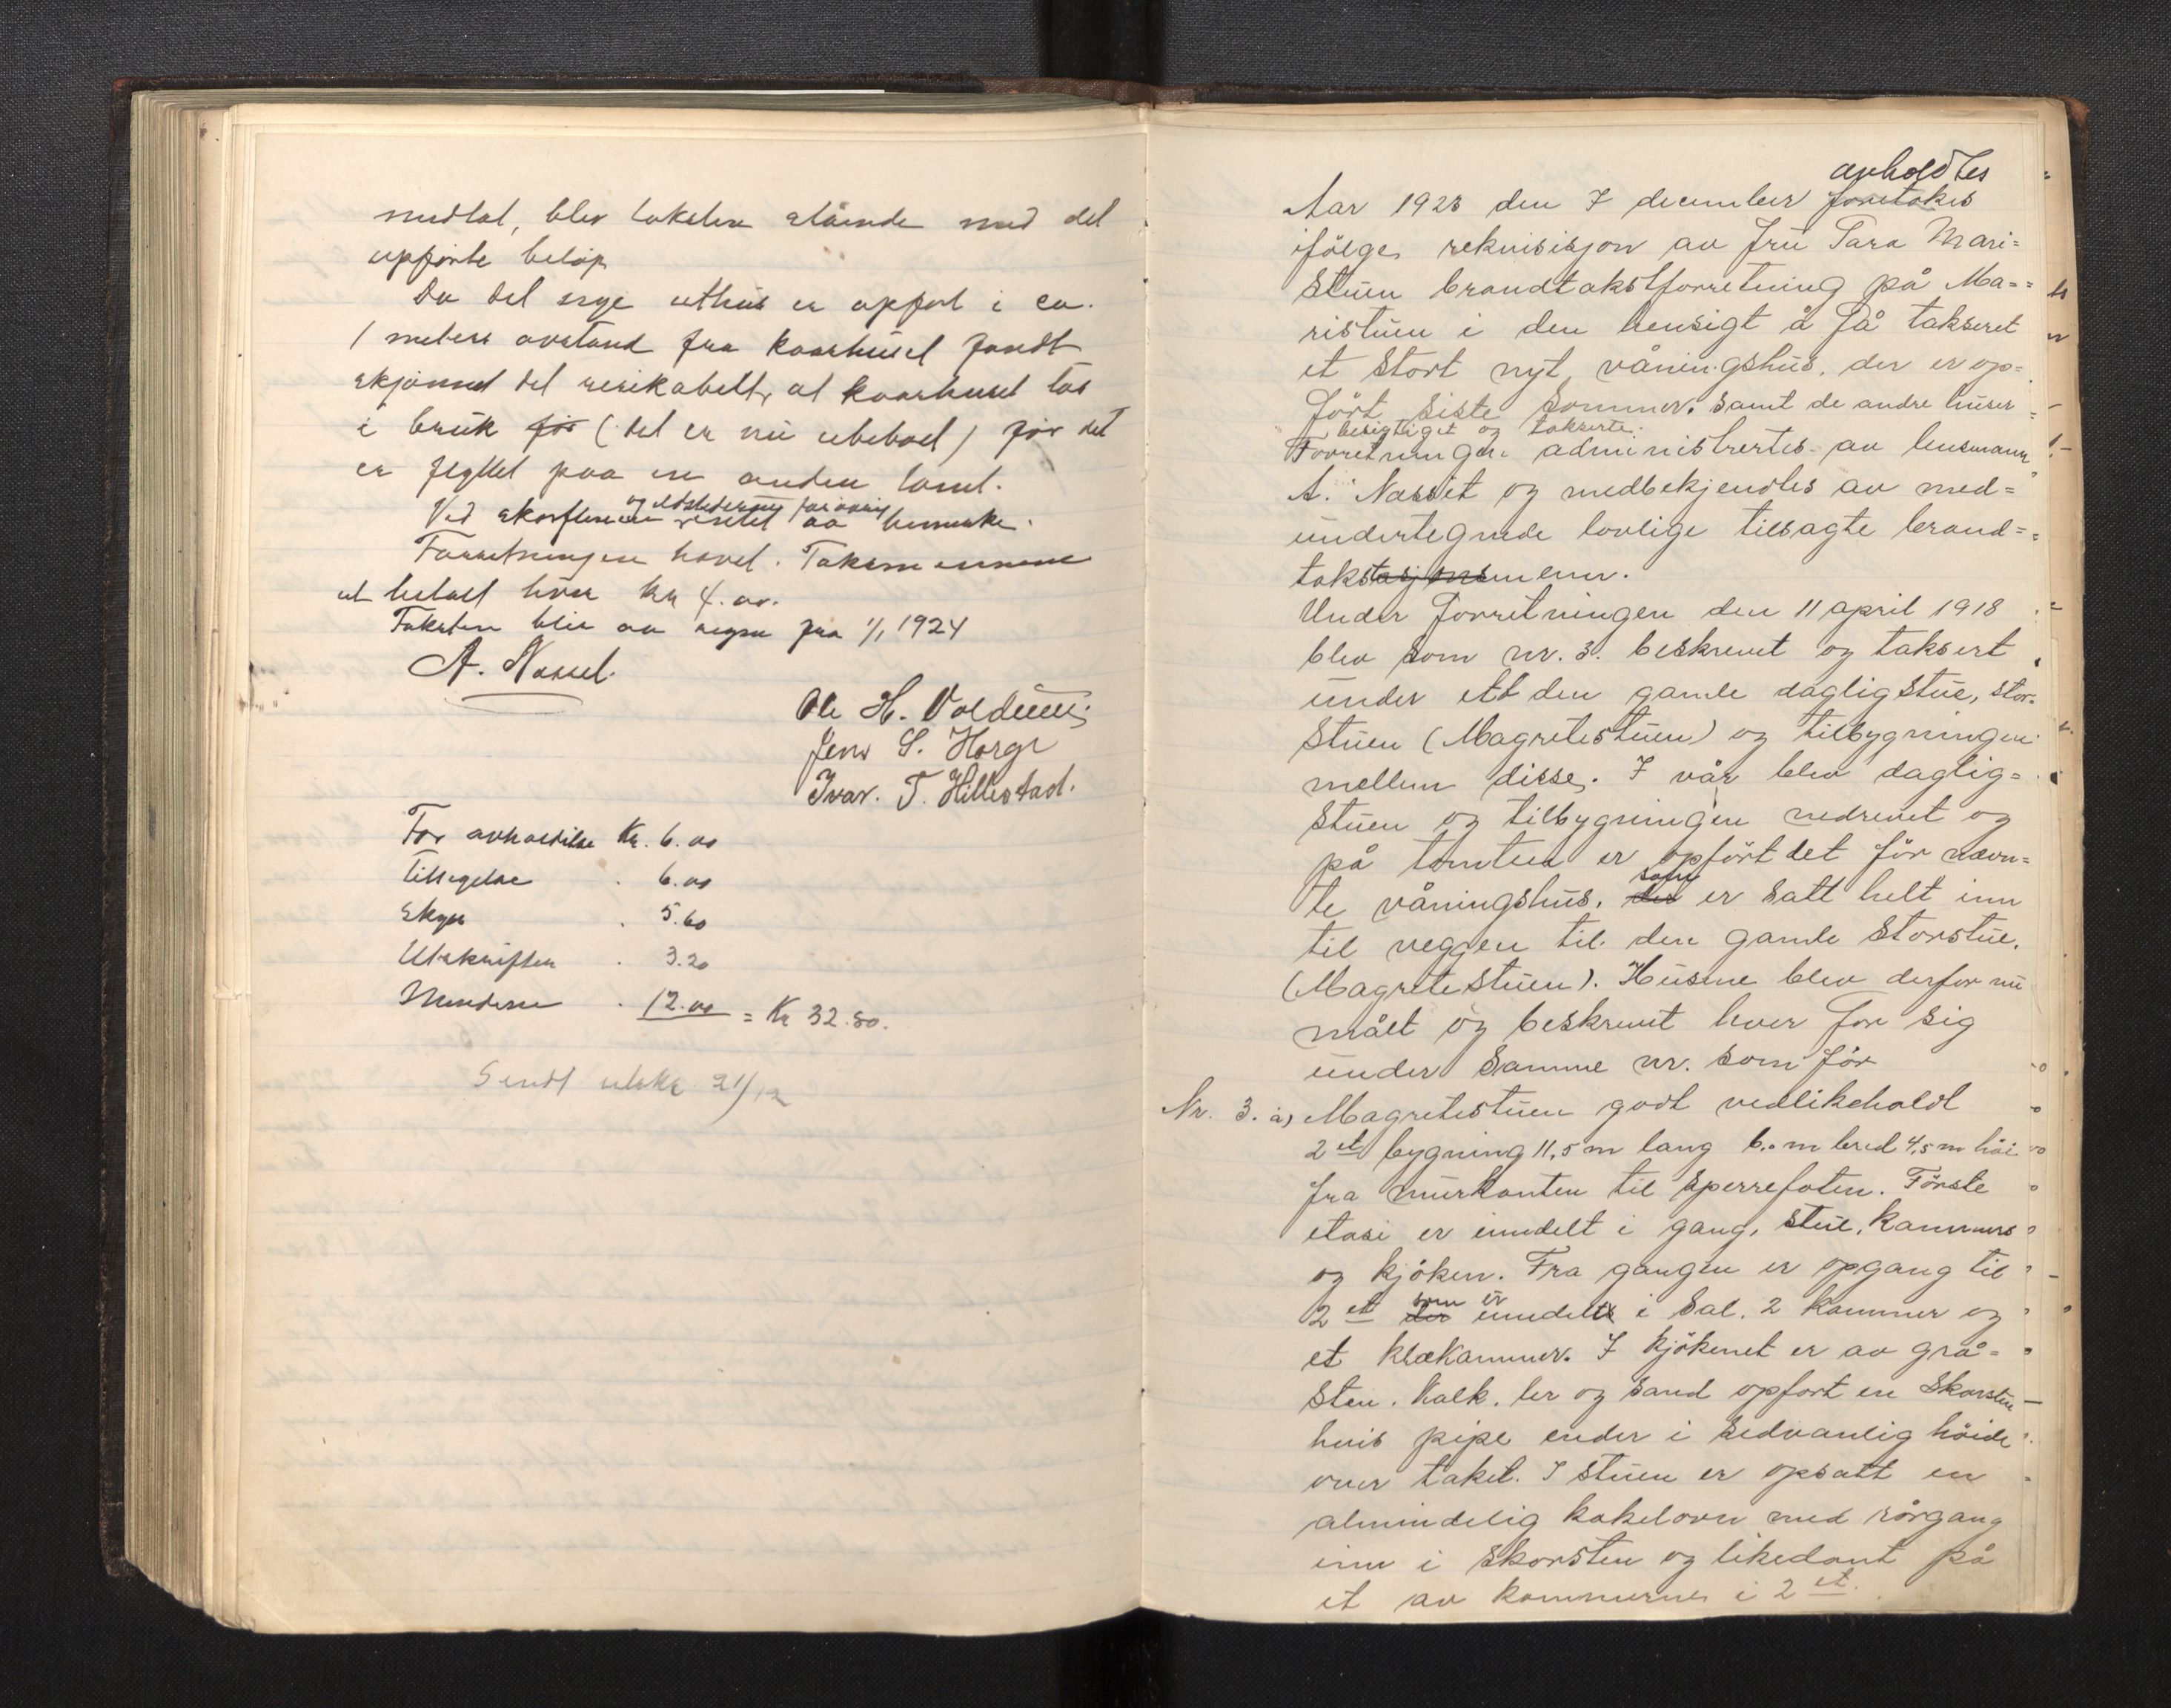 nedtat, blev taksten stående med det
opførte beløp
Da det nye uthus er opført i ca.
1 meters avstand fra kaarhuset fandt
skjønnet det resikabelt, at kaarhuset tas
i bruk før (det er nu ubeboet) før det
er flyttet paa en anden tomt.
og ildstederne forøvrig
Ved skorstenene intet aa bemerke.
Forretningen hævet. Taksmennene
ut betalt hver kr 4.00.
Taksten blir aa regne fra 1/1 1924
A. Næsset.
Ole H. Voldum
Jens S. Horge
Ivar. T. Hillestad.
For avholdelse Kr. 6.00
Tilsigelse . 6.00
Skyss . 5.60
Utskriften . 3.20
Mændene . 12.00 = Kr 32.80.
Sendt utskr 21/12
avholdtes
Aar 1923 den 7 december foretokes
ifölge rekvisisjon av fru Tara Mari=
stuen brandtakstforretning på Ma=
ristuen i den hensigt å få takseret
et stort nyt våningshus, der er op=
fört siste sommer. samt de andre huser
besigtiget og takserte.
Forretningen administrertes av lensmann
A. Næsset og medbekjendtes av med=
undertegnede lovlige tilsagte brand=
takstasjonsmenn.
Under forretningen den 11 april 1918
blev som nr. 3. beskrevet og taksert
under ett den gamle dagligstue, stor-
stuen (Magretestuen) og tilbygningen
mellem disse. I vår blev daglig=
stuen og tilbygningen nedrevet og
på tomten er opfört det för nævn=
som
te våningshus. der er satt helt inn
til veggen til den gamle storstue.
(Magretestuen). Husene blev derfor nu
målt og beskrevet hver for sig
under samme nr. som för
Nr. 3. a) Magretestuen godt vedlikeholdt
2 et bygning 11,5 m lang 6.0 m bred 4,5 m höi
fra murkanten til sperrefoten. Förste
etasi er inndelt i gang, stue, kammers
og kjöken. Fra gangen er opgang til
som er
2 et der inndelt i sal. 2 kammer og
et klækammer. I kjökenet er av grå=
sten. kalk. ler og sand opfort en skorsten
hvis pipe ender i sedvanlig höide
over taket. I stuen er opsatt en
almindelig kakelovn med rörgang
inn i skorsten og likedant på
et av kammerne i 2 et.